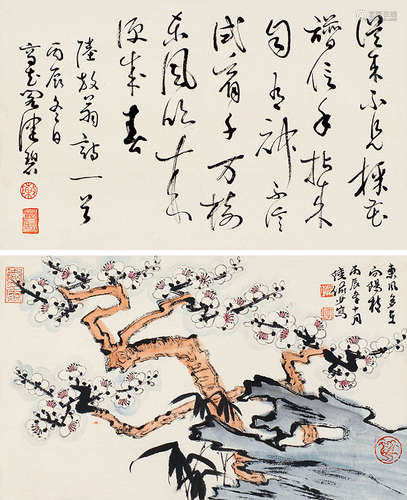 從來不見梅花
譜信手拈來
自有神不信
試看千萬樹
東風吹著
便成春
陸放翁詩一首
丙辰冬日
高花閣健碧
東風多在
向陽枝
丙辰十月
陸儼少寫